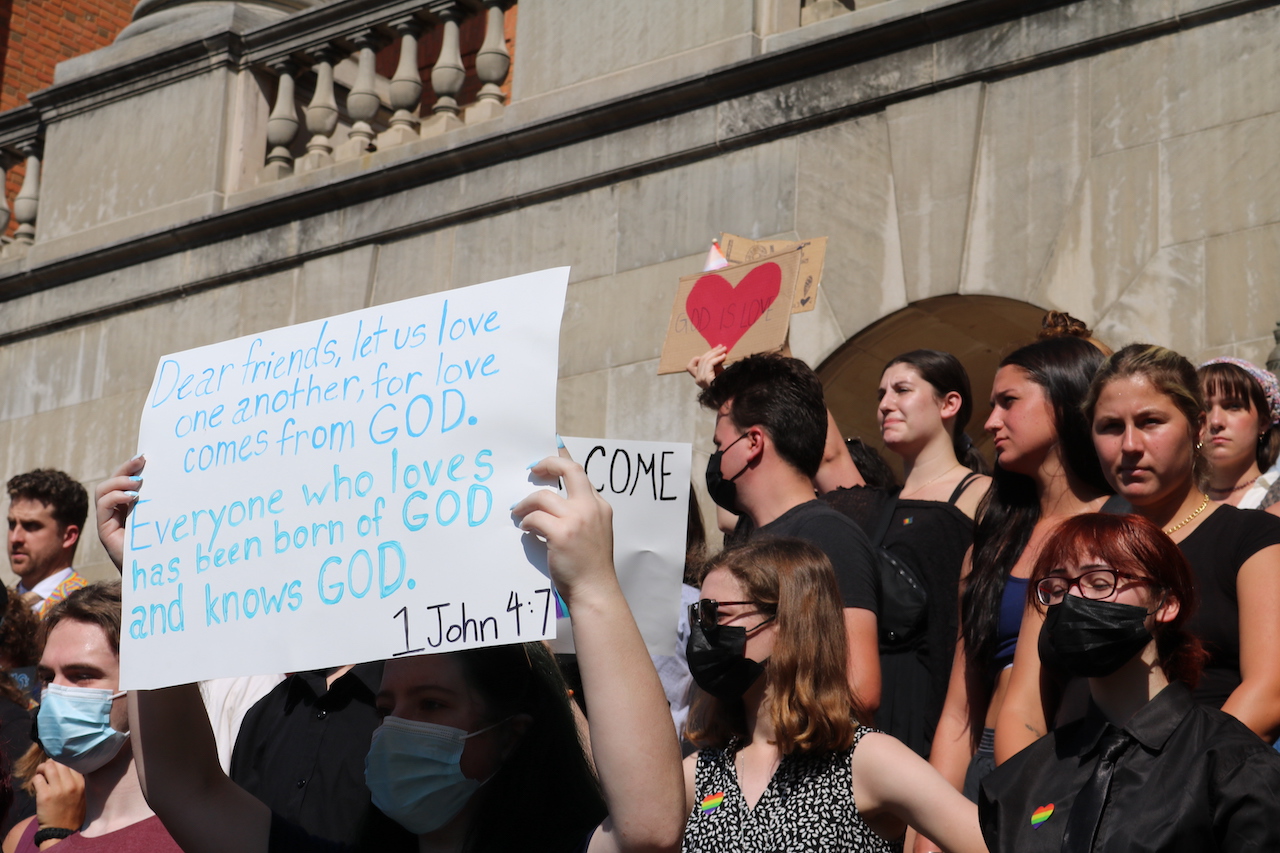 Dear friends, let us love
one another, for love
comes from GOD.
Everyone who loves
has been born of GOD
and knows GOD.
1 John 4:7
COME
GOD IS LOVE